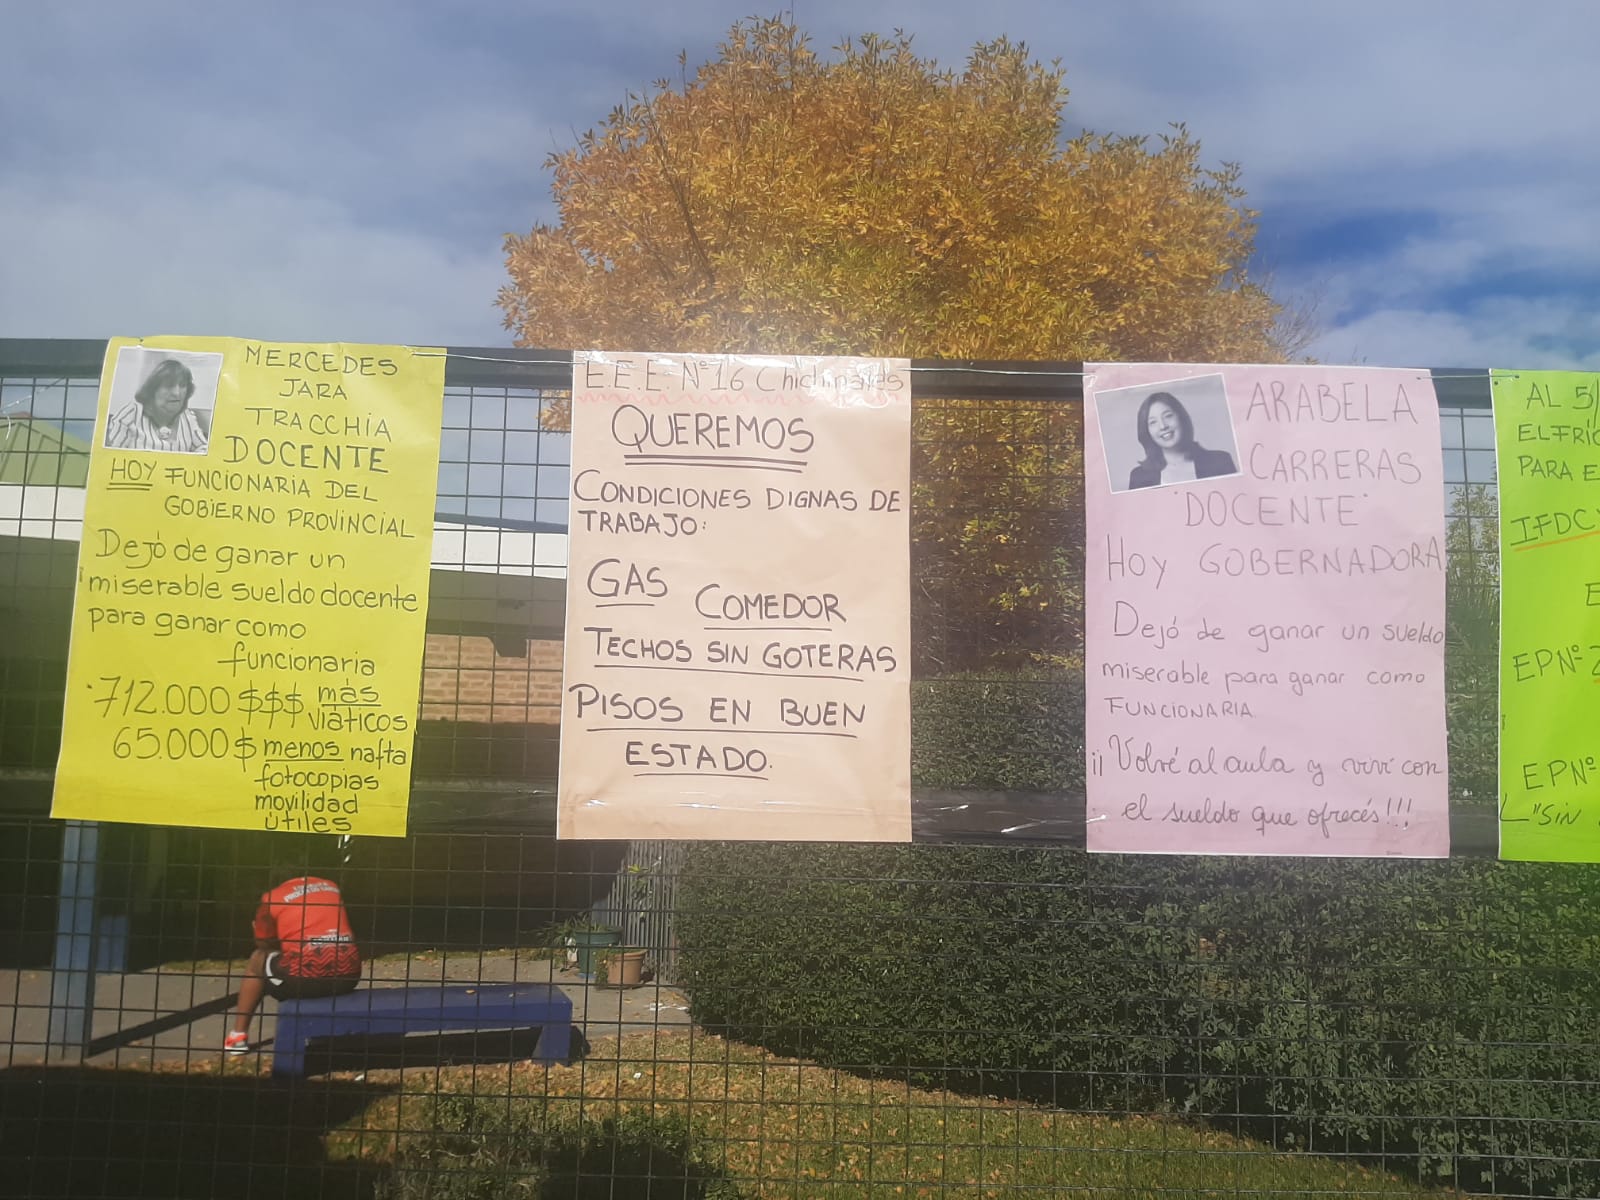 MERCEDES
JARA
TRACCHIA
DOCENTE
HOY FUNCIONARIA DEL
GOBIERNO PROVINCIAL
Dejó de ganar un
miserable sueldo docente
para ganar como
funcionaria
712.000 $$$ más
viáticos
65.000 $ menos nafta
fotocopias
movilidad
útiles
E.E.E. Nº16 Chichinales
QUEREMOS
CONDICIONES DIGNAS DE
TRABAJO:
GAS COMEDOR
TECHOS SIN GOTERAS
PISOS EN BUEN
ESTADO.
ARABELA
CARRERAS
"DOCENTE"
HOY GOBERNADORA
Dejó de ganar un sueldo
miserable para ganar como
FUNCIONARIA
¡¡Volvé al aula y viví con
el sueldo que ofrecés!!!
AL 5/
PARA E
IFDC
EPNº 2
EPNº
"SIN